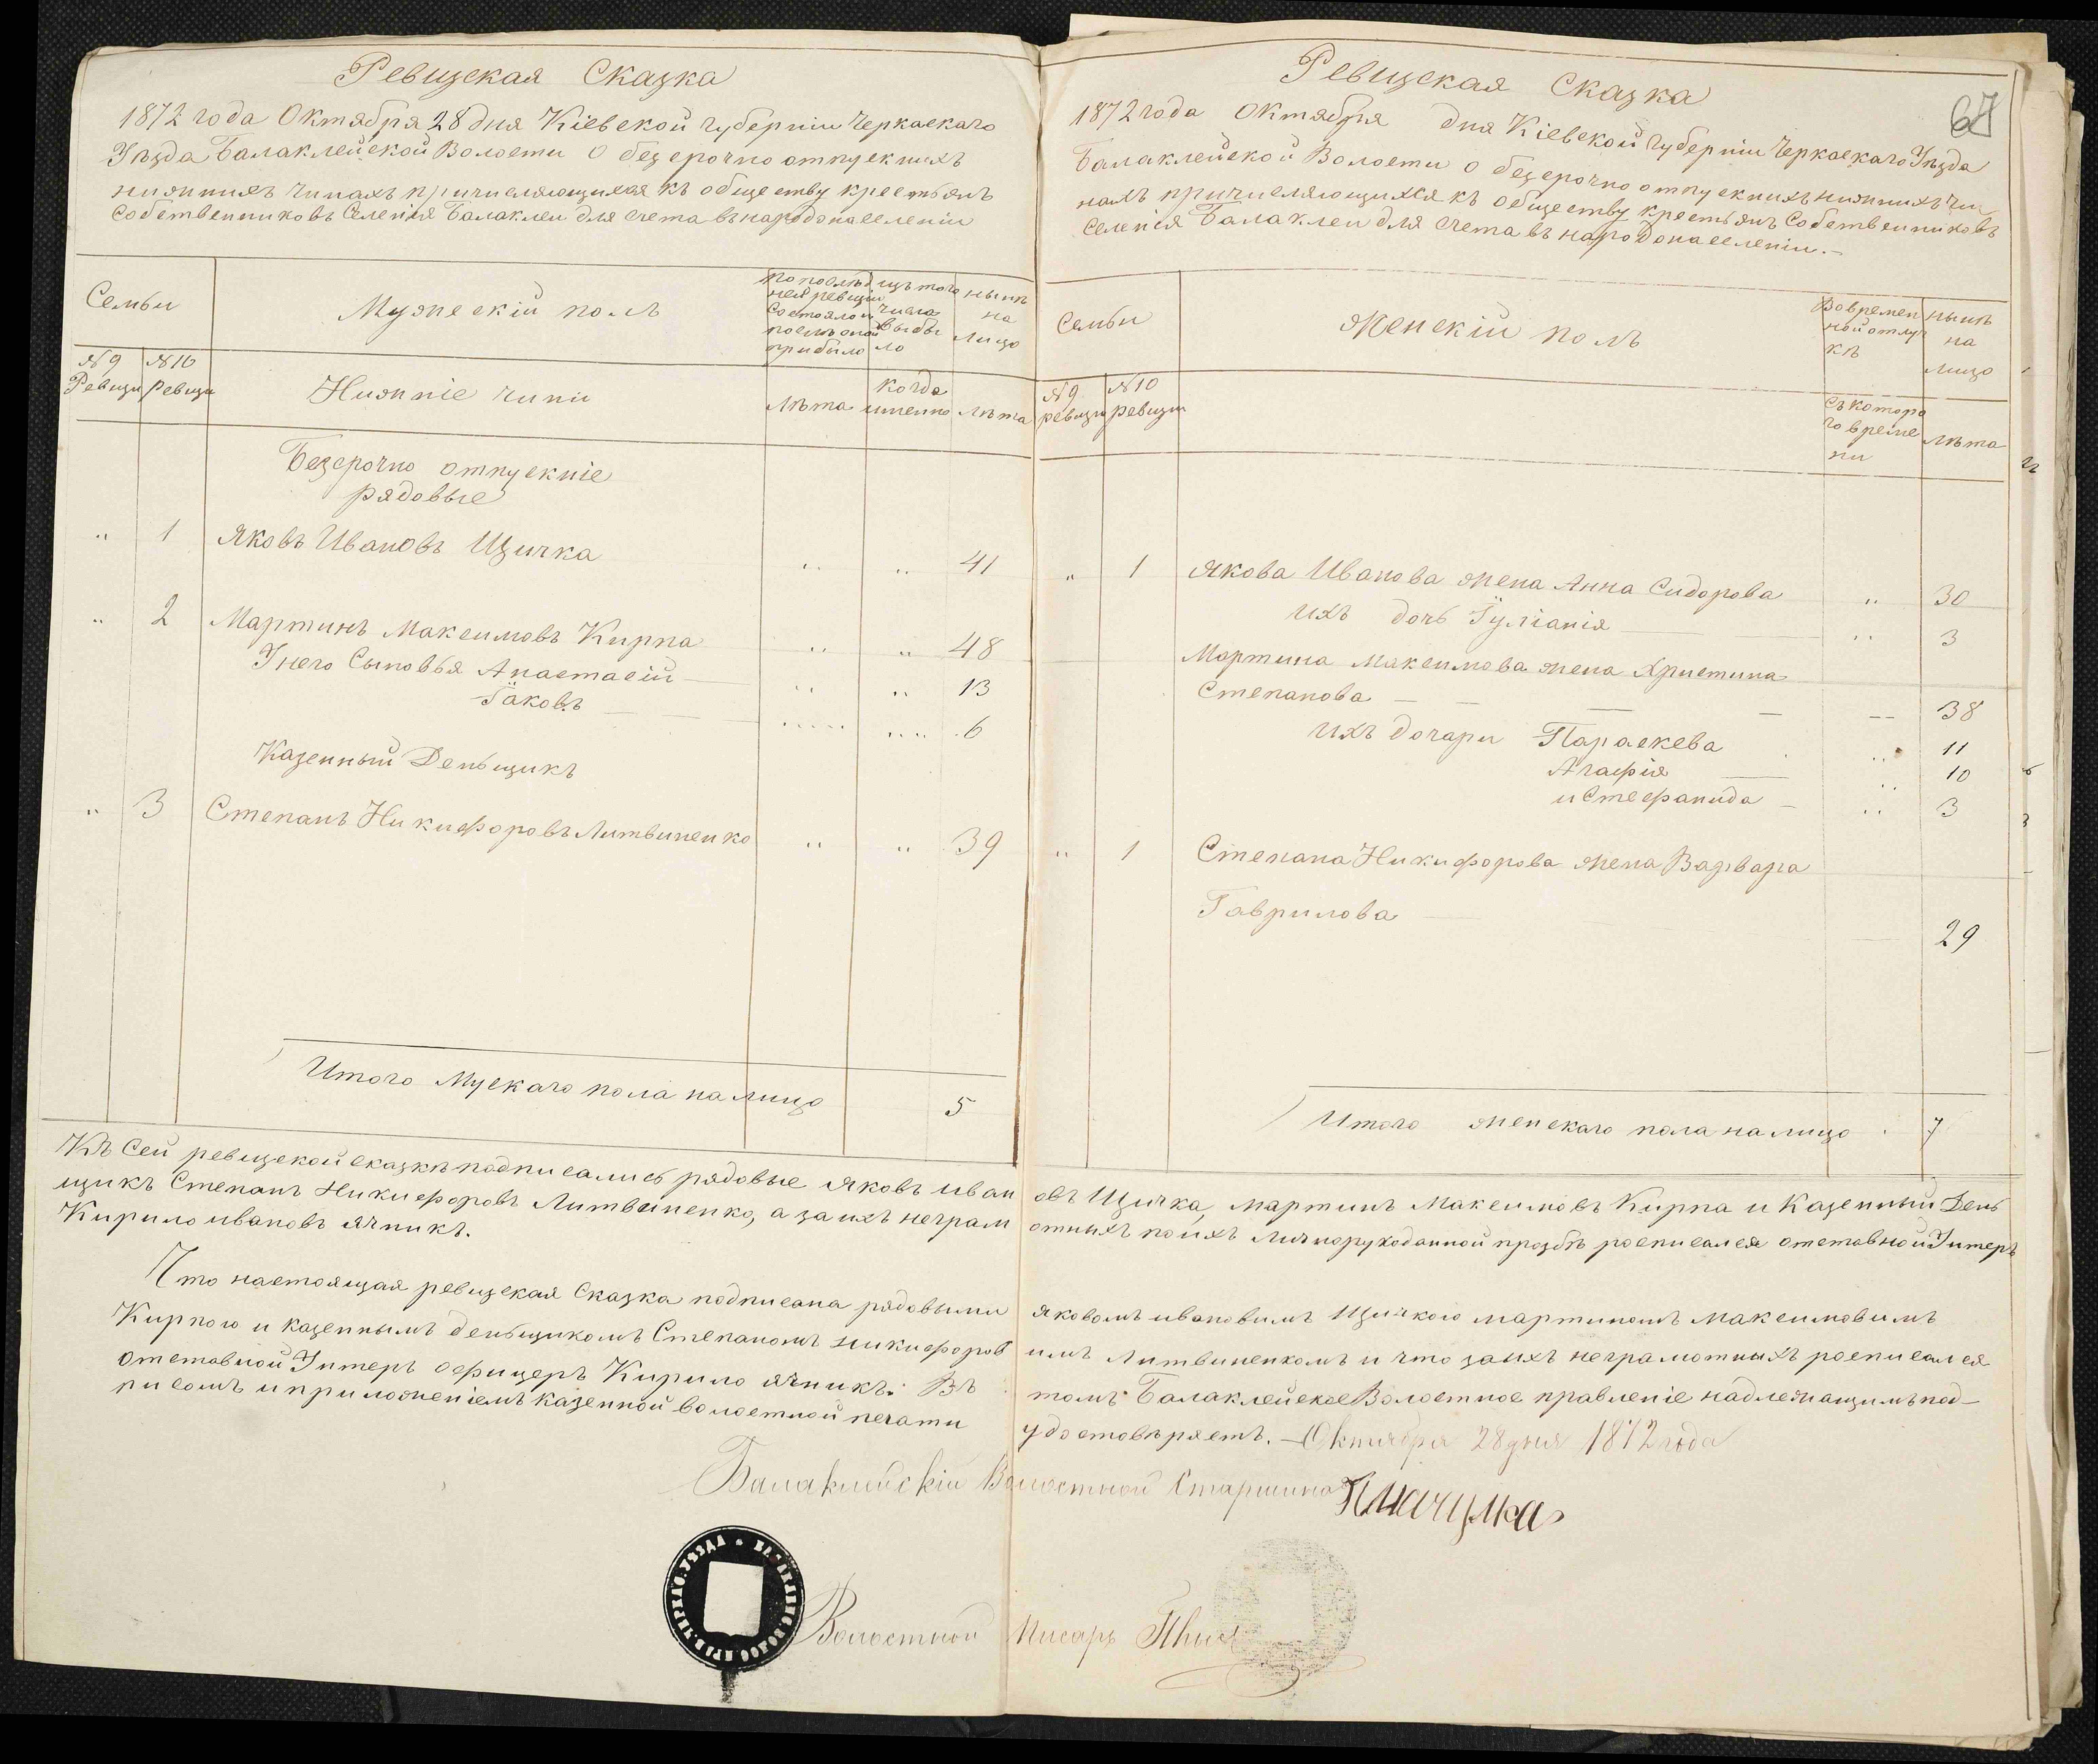 Ревизская Сказка
1872 года Октября 28 дня Кіевской губерніи Черкаскаго
Уѣзда Балаклейской Волости О безсрочно отпускныхъ
нижнихъ чинахъ причисляющихся къ обществу крестьянъ
собственниковъ Селенія Балаклеи для счета въ народонаселеніи
Семьи
Мужескій полъ
По послѣд
ней ревизіи
состояло и
послѣ оной
прибыло
изъ того
числа
выбы
ло
нынѣ
на
лицо
№ 9
Ревизи
№ 10
Ревизи
Нижніе чины
Лѣта
когда
именно
Лѣта
Безсрочно отпускніе
рядовые
" 1 Яковъ Ивановъ Щичка " " 41
" 2 Мартинъ Максимовъ Кирпа " " 48
У него Сыновья Анастасій " " 13
Іаковъ " " 6
Казенный Деньщикъ
" 3 Степанъ Никифоровъ Литвиненко " " 39
Итого Мускаго пола на лицо 5
Ревизская Сказка
67
1872 года Октября дня Кіевской губерніи Черкаскаго Уѣзда
Балаклейской Волости о безсрочно отпускныхъ нижнихъ чи
нахъ причисляющихся къ обществу крестьянъ Собственниковъ
Селенія Балаклеи для счета въ народонаселеніи.-
Семьи
Женскій полъ
Во времен
ной отлуч
кѣ
нынѣ
на
лицо
№ 9
ревизи
№ 10
ревизи
Съ которо
го време
ни
Лѣта
" 1 Якова Иванова жена Анна Сидорова " 30
ихъ дочь Іуліанія " 3
Мартина Максимова жена Христина
Степанова 38
ихъ дочари Параскева " 11
Агафія " 10
и Стефанида " 3
" 1 Степана Никифорова жена Варвара
Гаврилова 29
Итого женскаго пола налицо 7
Къ Сей ревизской сказкѣ подписались рядовые Яковъ Иван овъ Щичка, Мартинъ Максимовъ Кирпа и Казенный День
щикъ Степанъ Никифоровъ Литвиненко, а за ихъ неграм отныхъ по ихъ личнорукоданной прозбѣ росписался отставной Унтеръ
Кирило Ивановъ Ячникъ.
Что настоящая ревизская Сказка подписана рядовыми Яковомъ Ивановимъ Щичкою Мартиномъ Максимовимъ
Кирпою и казеннымъ деньщикомъ Степаномъ Никифоров имъ Литвиненкомъ и что заихъ неграмотныхъ росписался
отставной Унтеръ офицеръ Кирило Ячникъ. Въ томъ Балаклейское Волостное правленіе надлежащимъ под-
писомъ и приложеніемъ казенной волостной печати удостовѣряетъ. - Октября 28 дня 1872 года
Балаклейскій Волостной Старшина
Волостной Писарь